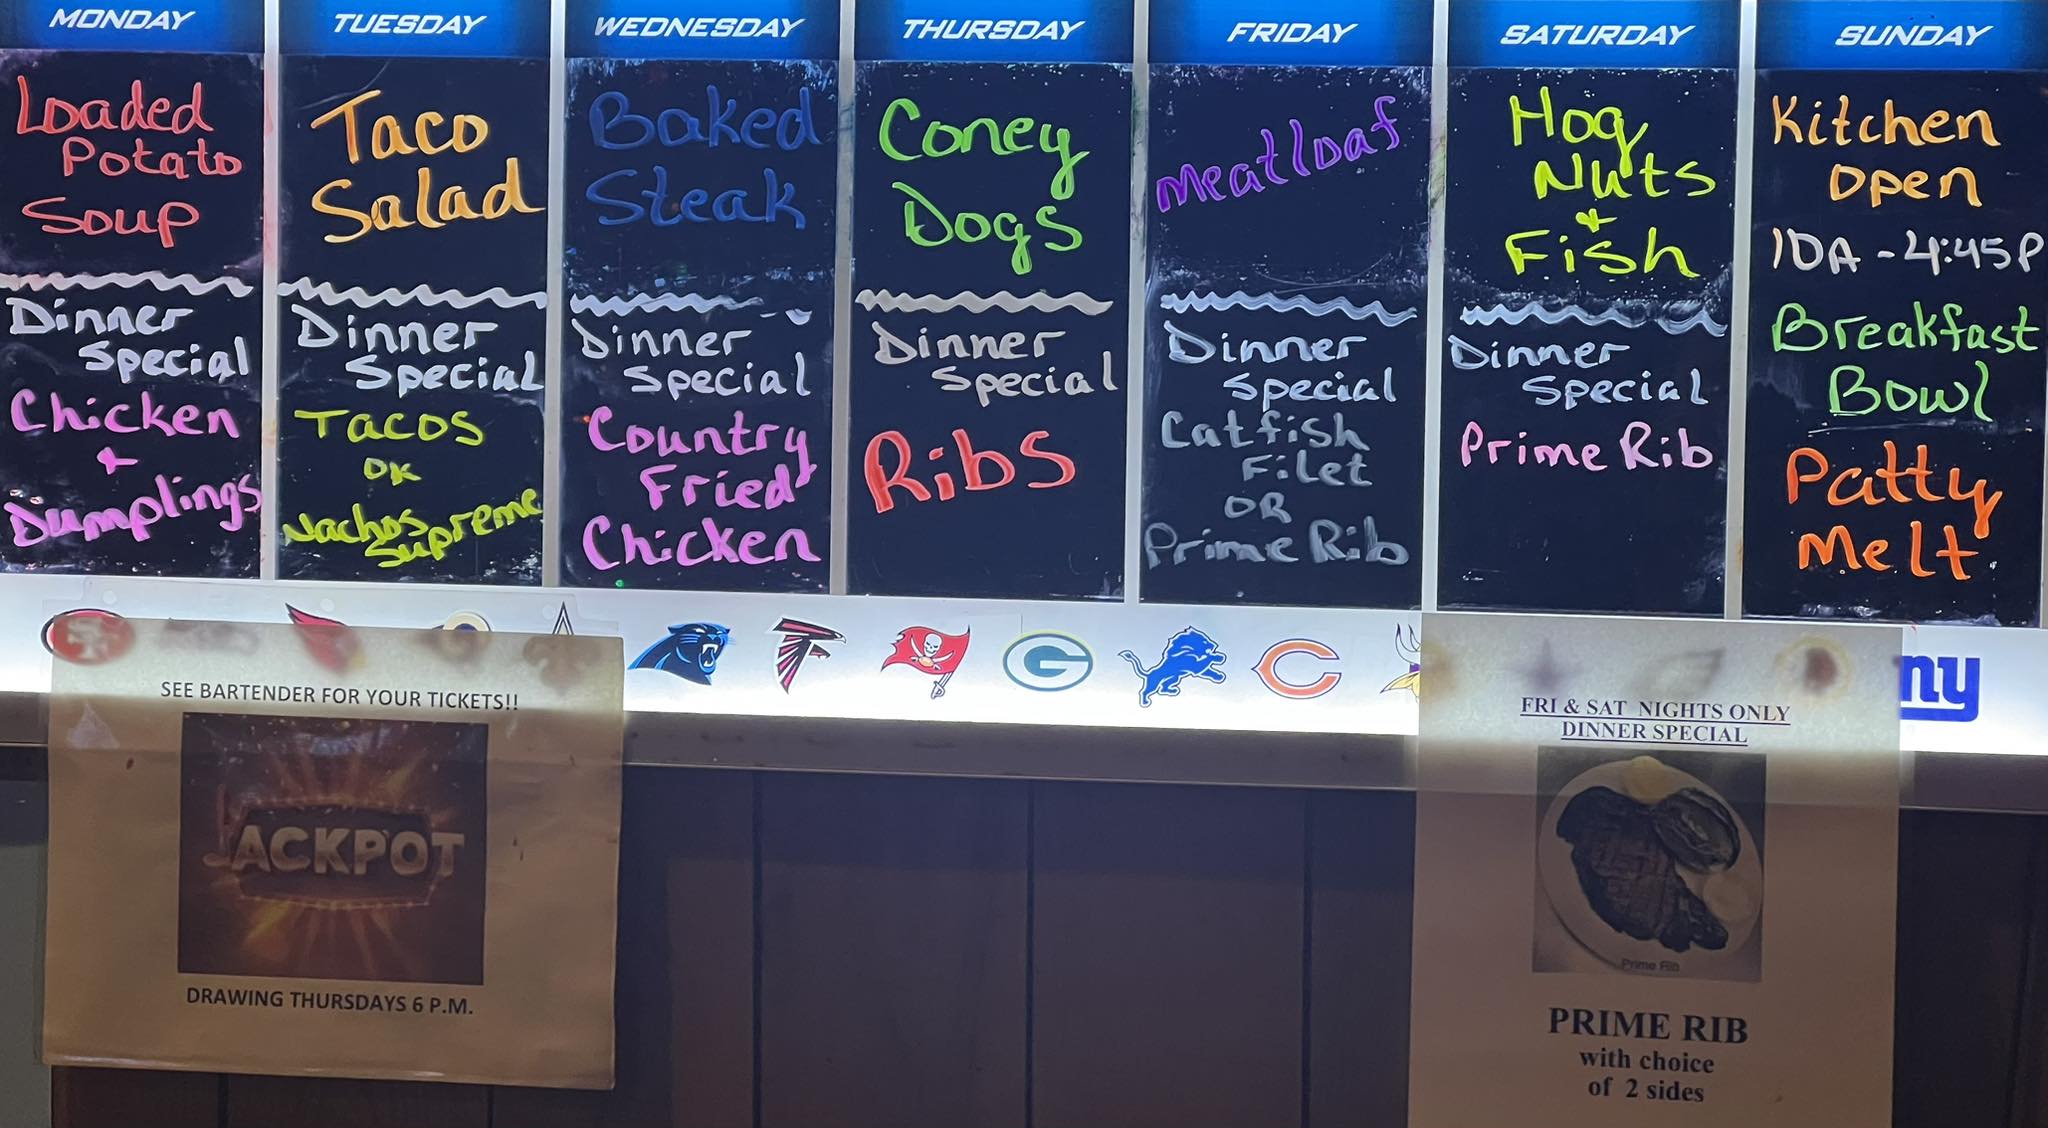 MONDAY
Loaded
Potato
Soup
Dinner
Special
Chicken
&
Dumplings
TUESDAY
Taco
Salad
Dinner
Special
Tacos
OR
Nachos
Supreme
WEDNESDAY
Baked
Steak
Dinner
Special
Country
Fried
Chicken
THURSDAY
Coney
Dogs
Dinner
Special
Ribs
FRIDAY
Meatloaf
Dinner
Special
Catfish
Filet
OR
Prime Rib
SATURDAY
Hog
Nuts
&
Fish
Dinner
Special
Prime Rib
SUNDAY
Kitchen
Open
10A - 4:45P
Breakfast
Bowl
Patty
Melt
G
C
ny
SEE BARTENDER FOR YOUR TICKETS!!
JACKPOT
DRAWING THURSDAYS 6 P.M.
FRI & SAT NIGHTS ONLY
DINNER SPECIAL
Prime Rib
PRIME RIB
with choice
of 2 sides